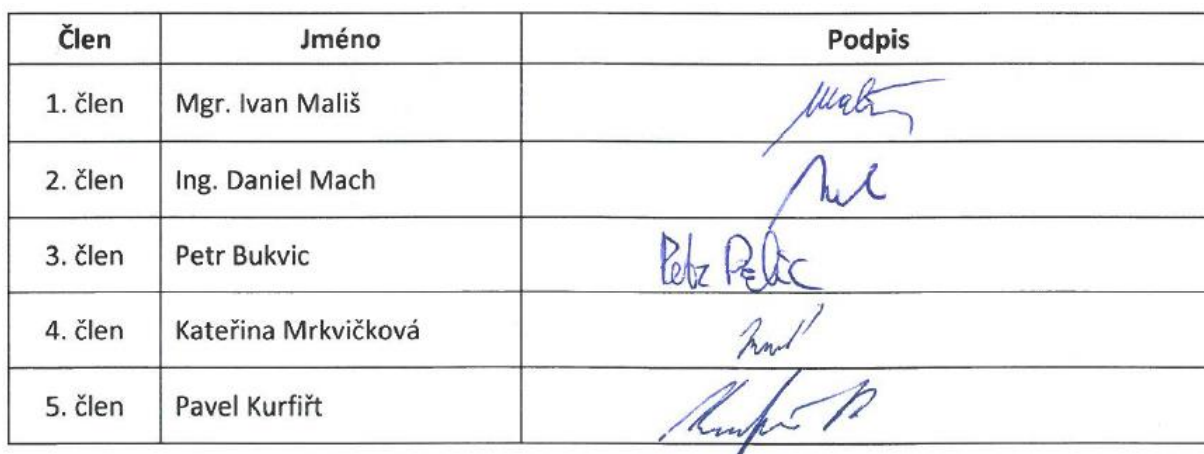 Člen Jméno Podpis
1. člen Mgr. Ivan Mališ
2. člen Ing. Daniel Mach
3. člen Petr Bukvic Petr
4. člen Kateřina Mrkvičková
5. člen Pavel Kurfiřt